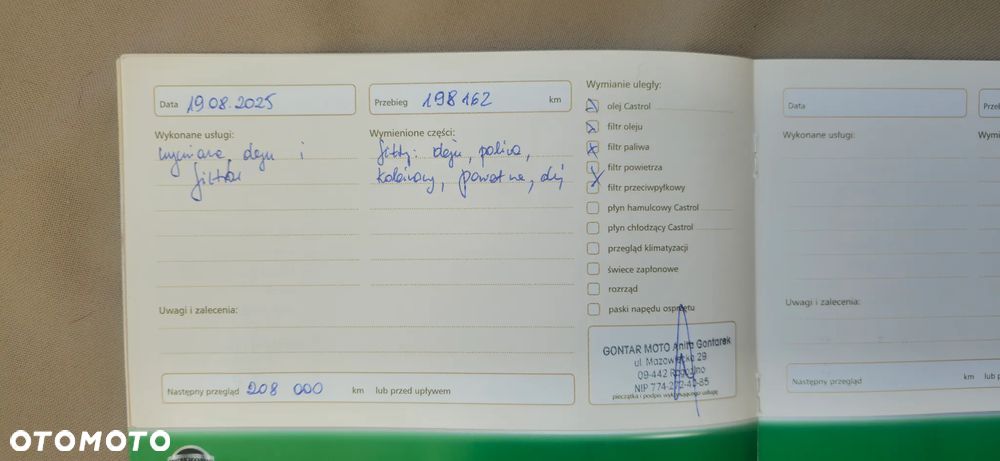 Data 19.08.2025
Przebieg 198 162 km
Wykonane usługi:
wymiana oleju i
filtrów
Wymienione części:
filtry: oleju, paliwa,
kabinowy, powietrza, olej
Wymianie uległy:
olej Castrol
filtr oleju
filtr paliwa
filtr powietrza
filtr przeciwpyłkowy
płyn hamulcowy Castrol
płyn chłodzący Castrol
przegląd klimatyzacji
świece zapłonowe
rozrząd
paski napędu osprzętu
Uwagi i zalecenia:
GONTAR MOTO Anita Gontarek
ul. Mazowiecka 29
09-442 Rogozino
NIP 774-272-40-85
pieczątka i podpis wykonującego usługę
Następny przegląd 208 000 km lub przed upływem
Data
Wykonane usługi:
Uwagi i zalecenia:
Następny przegląd km
OTOMOTO